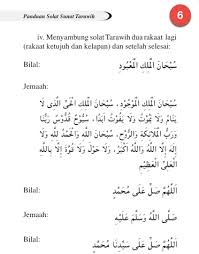 Panduan Solat Sunat Tarawih
6
iv. Menyambung solat Tarawih dua rakaat lagi
(rakaat ketujuh dan kelapan) dan setelah selesai:
Bilal:
سُبْحَانَ الْمَلِكِ الْمَعْبُودِ
Jemaah:
سُبْحَانَ الْمَلِكِ الْمَوْجُوْدِ، سُبْحَانَ الْمَلِكِ الْحَيِّ الَّذِي لَا
يَنَامُ وَلَا يَمُوْتُ وَلَا يَفُوْتُ أَبَدًا، سُبُّوْحٌ قُدُّوْسٌ رَبُّنَا
وَرَبُّ الْمَلَائِكَةِ وَالرُّوْحِ، سُبْحَانَ اللَّهِ وَالْحَمْدُ لِلَّهِ وَلَا
إِلَهَ إِلَّا اللَّهُ وَاللَّهُ أَكْبَرُ، وَلَا حَوْلَ وَلَا قُوَّةَ إِلَّا بِاللَّهِ
الْعَلِيِّ الْعَظِيْمِ
Bilal:
اَللَّهُمَّ صَلِّ عَلَى مُحَمَّدٍ
Jemaah:
صَلَّى اللَّهُ وَسَلَّمَ عَلَيْهِ
Bilal:
اَللَّهُمَّ صَلِّ عَلَى سَيِّدِنَا مُحَمَّدٍ